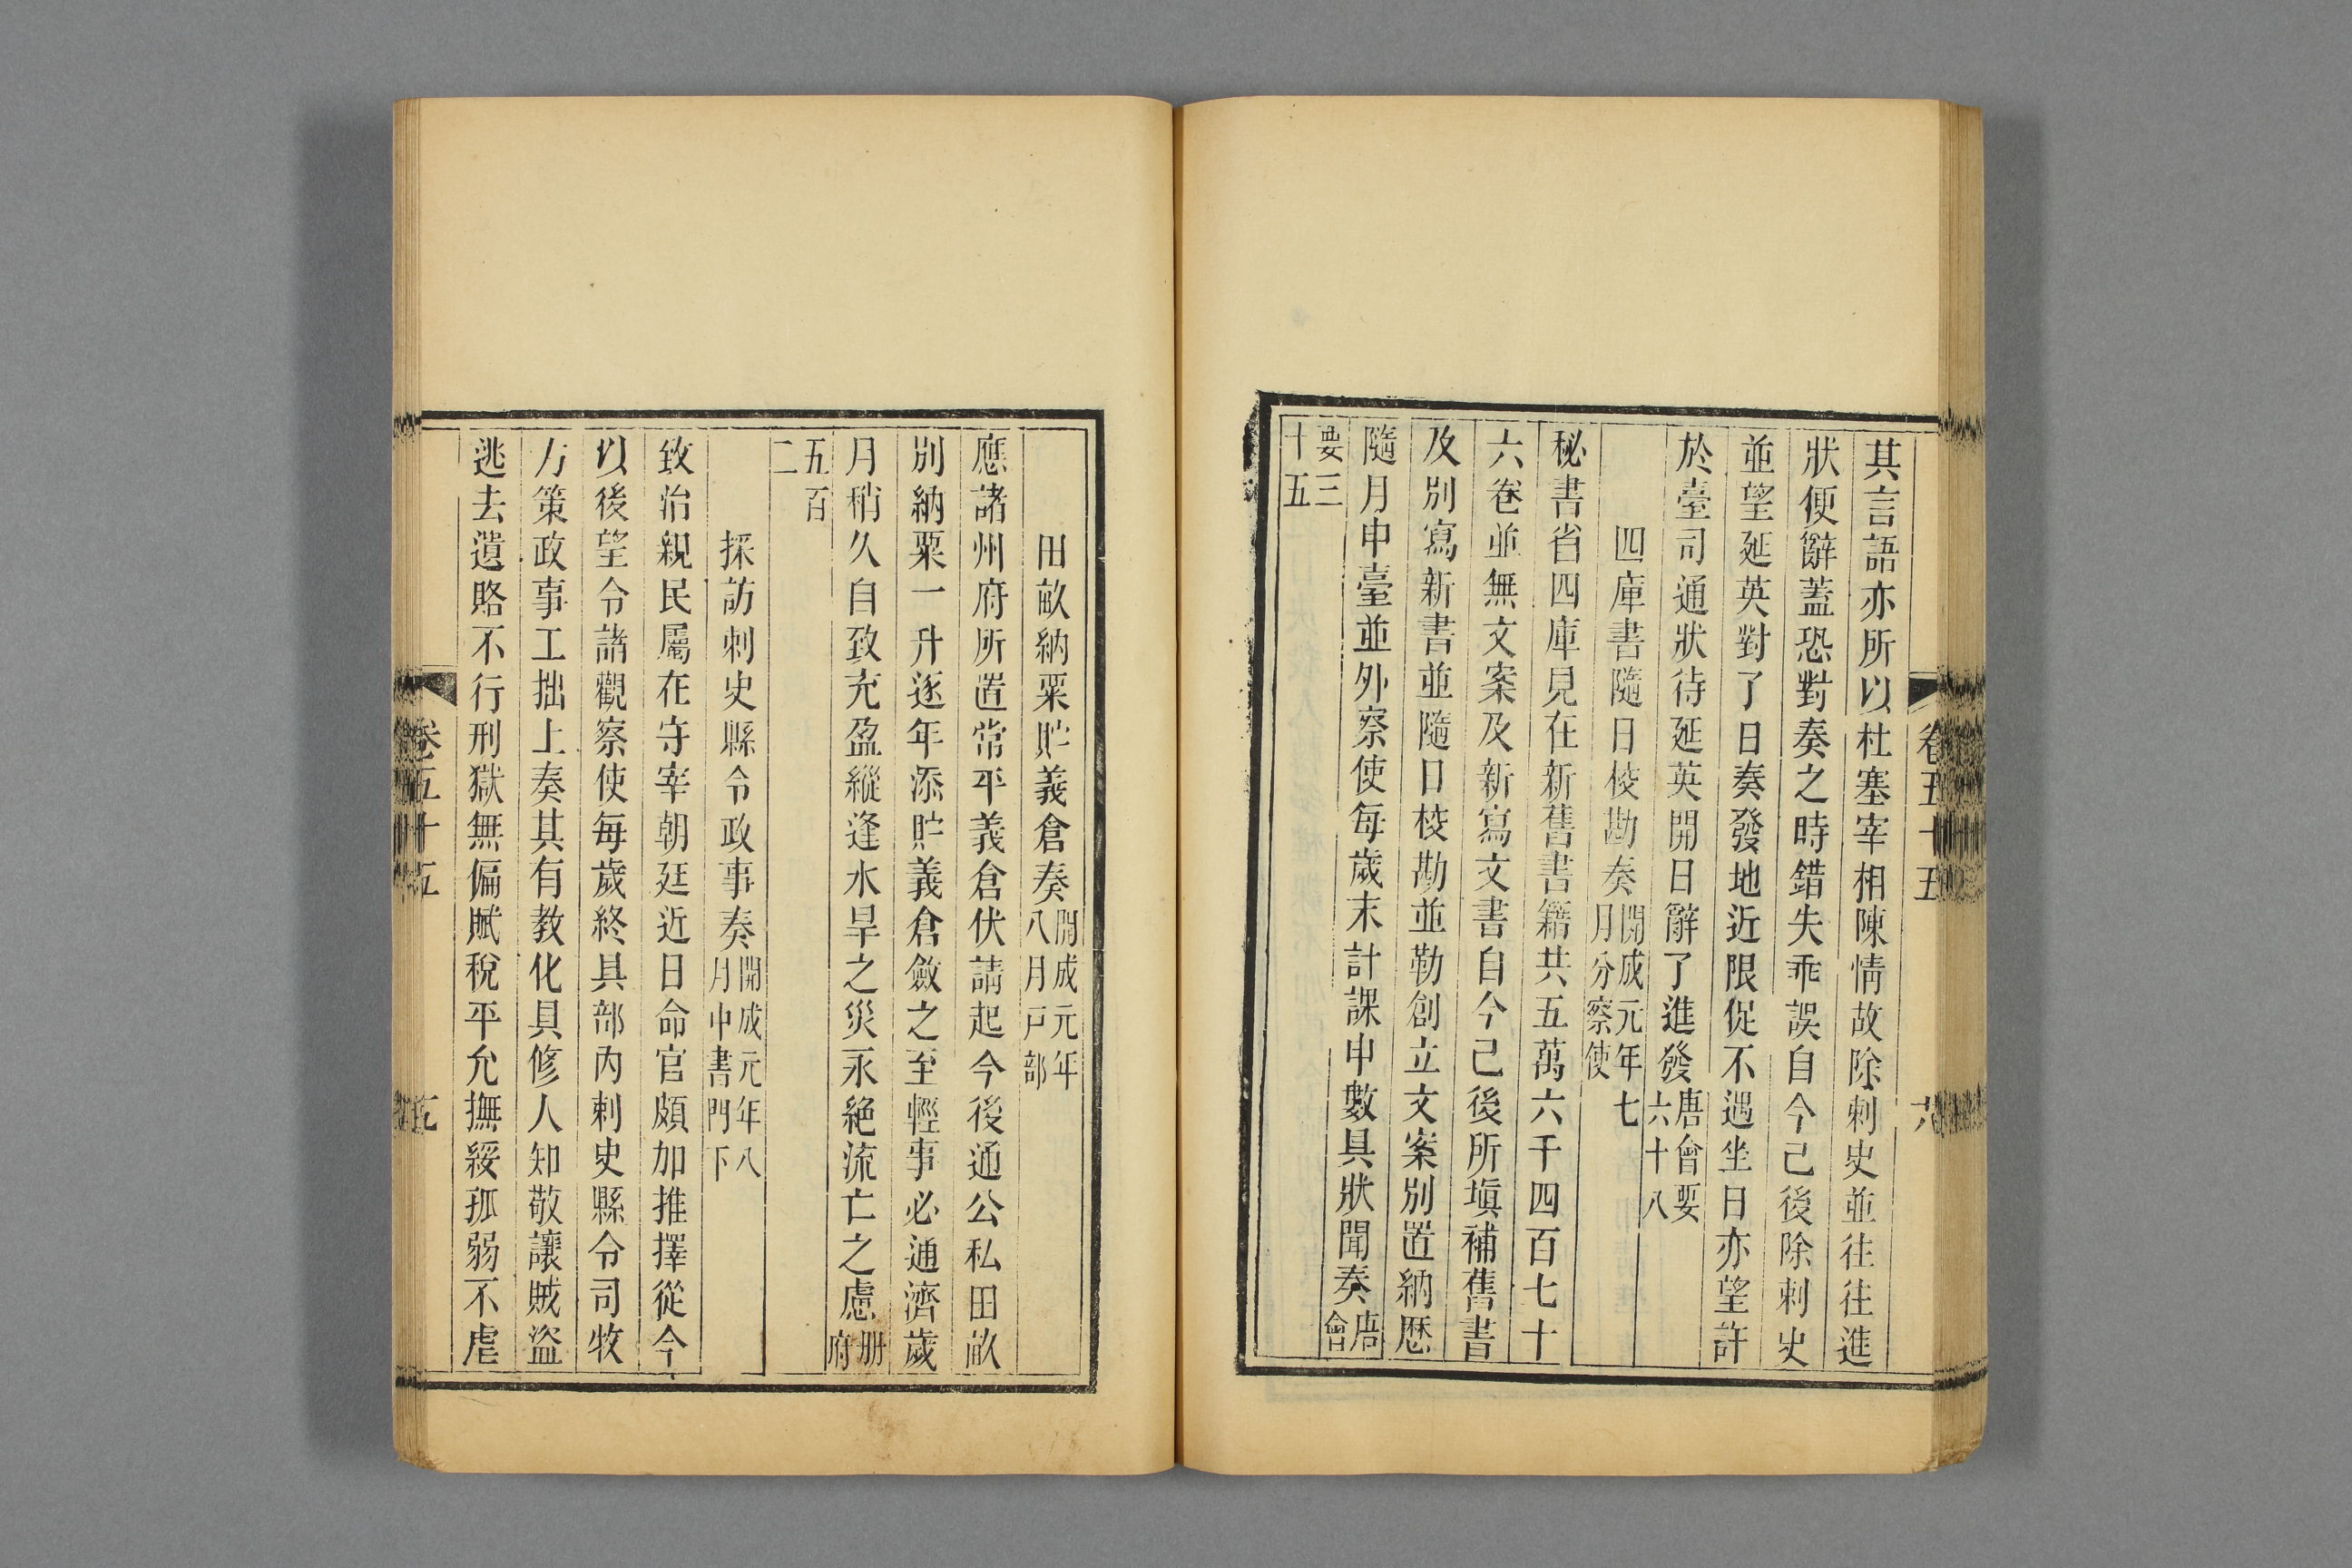 其言語亦所以杜塞宰相陳情故除刺史並往往進
狀便辭蓋恐對奏之時錯失乖誤自今已後除刺史
並望延英對了日奏發地近限促不遇坐日亦望許
於臺司通狀待延英開日辭了進發唐會要六十八
四庫書隨日校勘奏開成元年七月分察使
秘書省四庫見在新舊書籍共五萬六千四百七十
六卷並無文案及新寫文書自今已後所塡補舊書
及別寫新書並隨日校勘並勒創立文案別置納歷
隨月申臺並外察使每歲末計課申數具狀聞奏唐會
要三十五
卷五十五
六
田畝納粟貯義倉奏開成元年八月戸部
應諸州府所置常平義倉伏請起今後通公私田畝
別納粟一升逐年添貯義倉斂之至輕事必通濟歲
月稍久自致充盈縱逢水旱之災永絶流亡之慮册府
五百二
採訪刺史縣令政事奏開成元年八月中書門下
致治親民屬在守宰朝廷近日命官頗加推擇從今
以後望令諸觀察使每歲終具部內刺史縣令司牧
方策政事工拙上奏其有教化具修人知敬讓賊盜
逃去遺賂不行刑獄無偏賦稅平允撫綏孤弱不虐
卷五十五